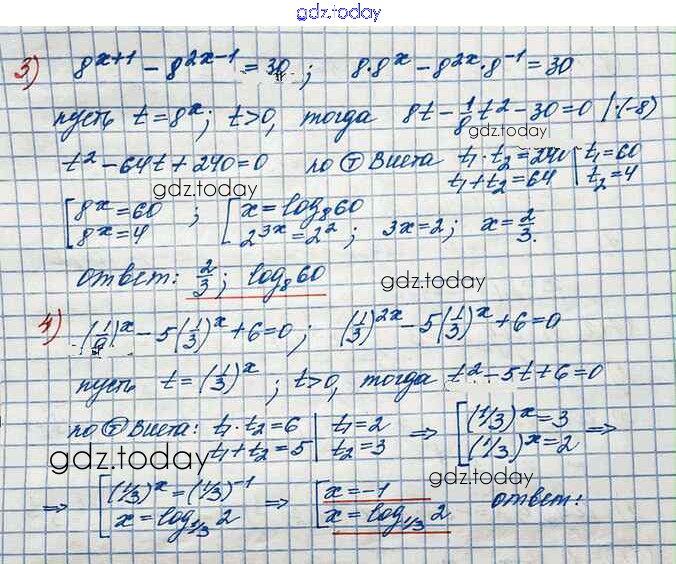 gdz.today
3) 8^(x+1) − 8^(2x−1) = 30 ; 8·8^x − 8^(2x)·8^(−1) = 30
пусть t = 8^x ; t>0, тогда 8t − 1/8 t² − 30 = 0 |·(−8)
gdz.today
t² − 64t + 240 = 0 по Ⓣ Виета t₁·t₂ = 240 | t₁ = 60
t₁ + t₂ = 64 | t₂ = 4
gdz.today
[ 8^x = 60 ; [ x = log₈60
8^x = 4 2^(3x) = 2² ; 3x = 2 ; x = 2/3.
ответ: 2/3 ; log₈60
gdz.today
4) (1/9)^x − 5(1/3)^x + 6 = 0 ; (1/3)^(2x) − 5(1/3)^x + 6 = 0
пусть t = (1/3)^x ; t>0, тогда t² − 5t + 6 = 0
по Ⓣ Виета: t₁·t₂ = 6 | t₁ = 2 ⇒ [ (1/3)^x = 3
t₁ + t₂ = 5 | t₂ = 3 (1/3)^x = 2 ⇒
gdz.today
gdz.today
⇒ [ (1/3)^x = (1/3)^(−1) ⇒ [ x = −1 ответ!
x = log_(1/3) 2 x = log_(1/3) 2